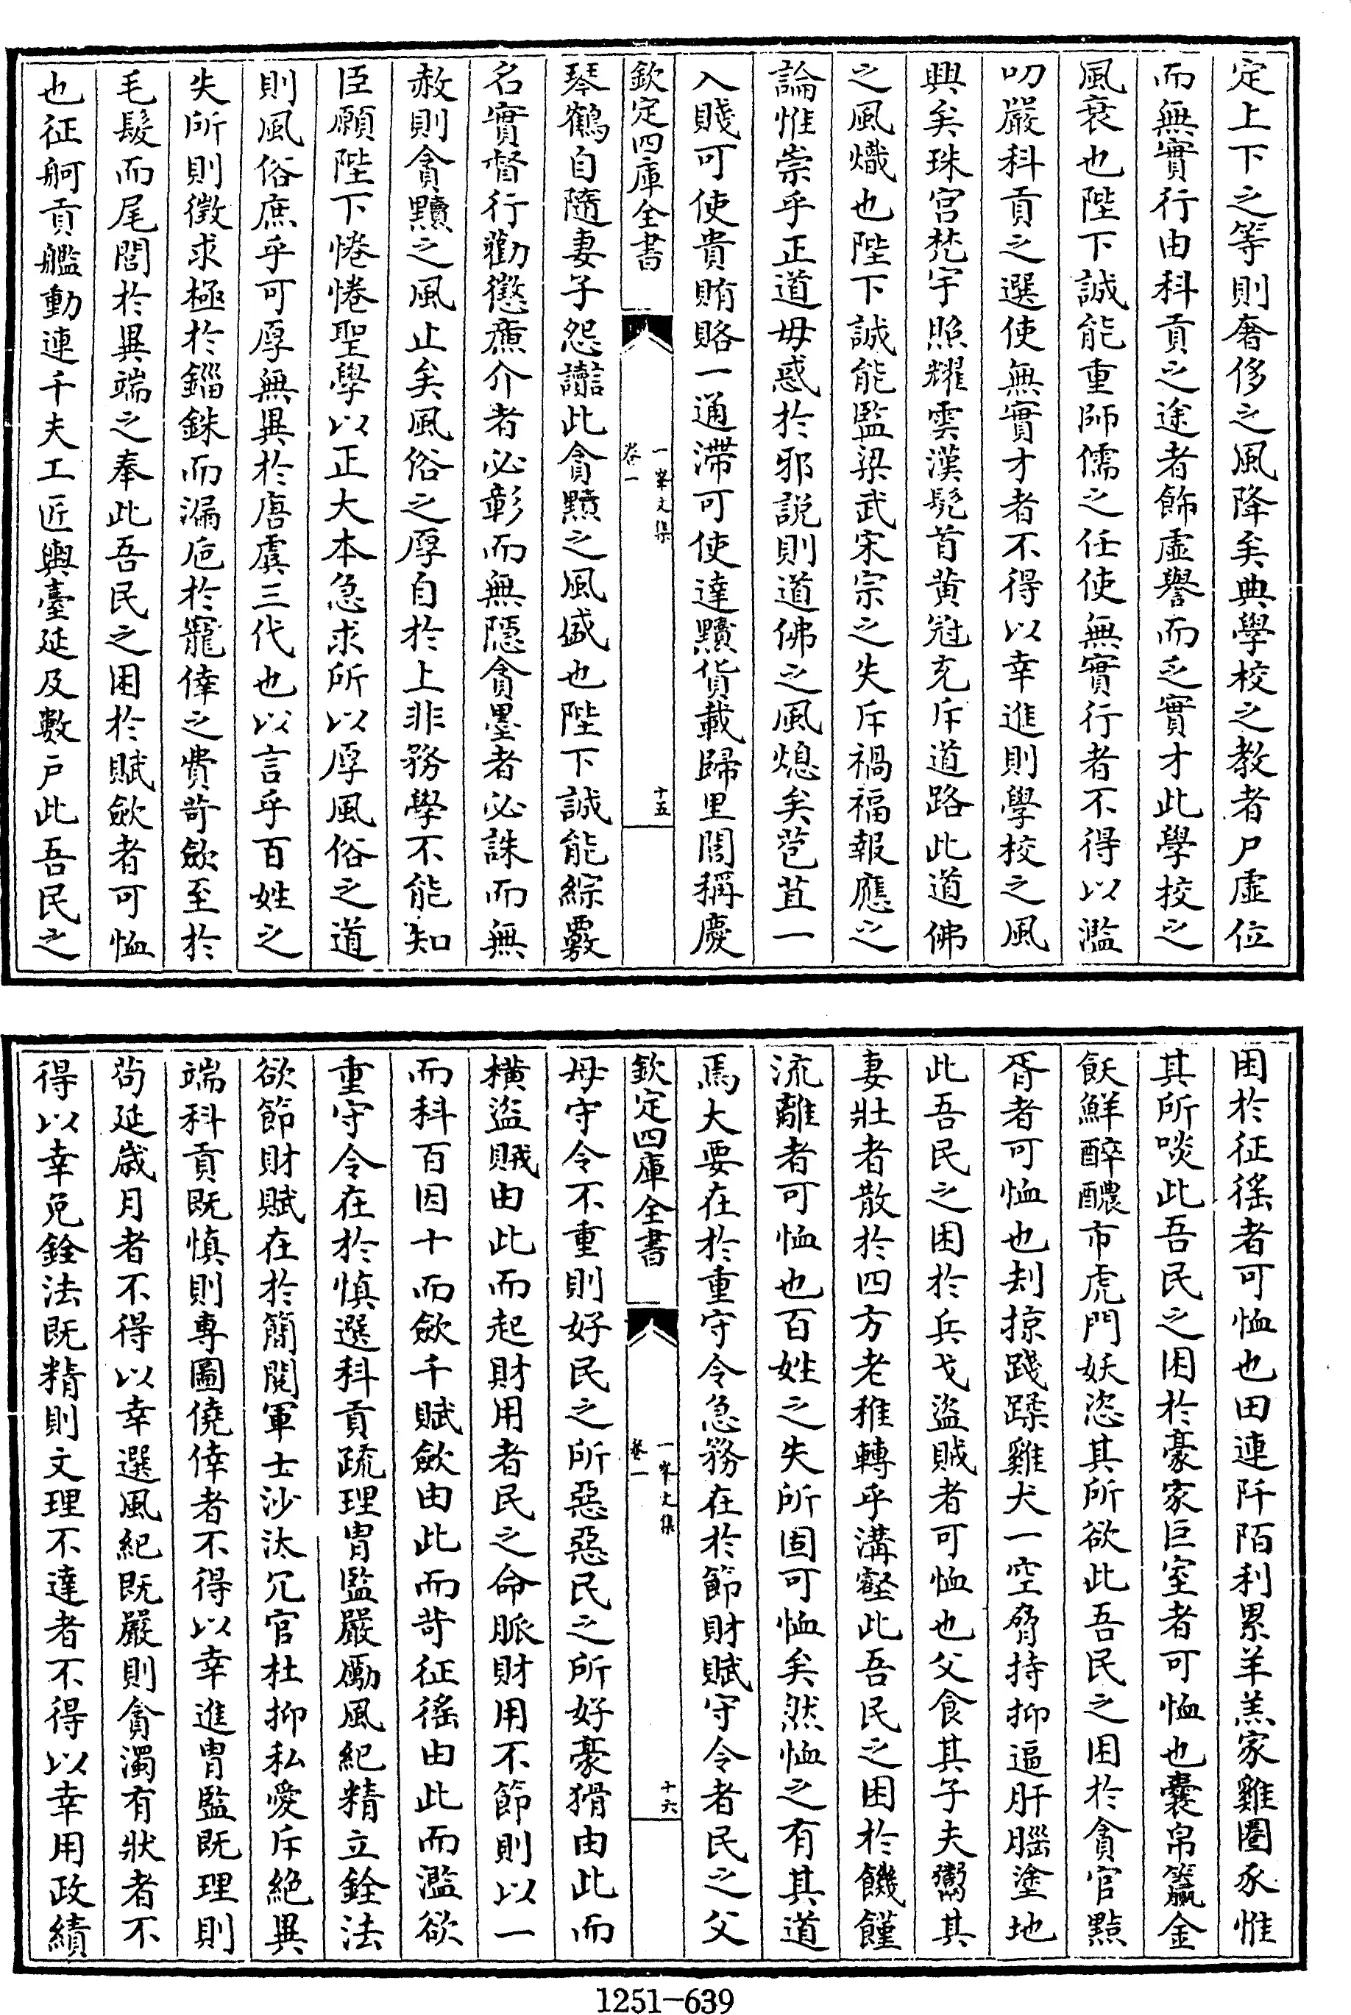 定上下之等則奢侈之風降矣典學校之教者尸虛位
而無實行由科貢之途者飾虛譽而乏實才此學校之
風衰也陛下誠能重師儒之任使無實行者不得以濫
叨嚴科貢之選使無實才者不得以幸進則學校之風
興矣珠宮梵宇照耀雲漢髡首黄冠充斥道路此道佛
之風熾也陛下誠能監梁武宋宗之失斥禍福報應之
論惟崇乎正道毋惑於邪說則道佛之風熄矣苞苴一
入賤可使貴賄賂一通滯可使達黷貨載歸里閭稱慶
欽定四庫全書
一峯文集
卷一
十五
琴鶴自隨妻子怨讟此貪黷之風盛也陛下誠能綜覈
名實督行勸懲廉介者必彰而無隱貪墨者必誅而無
赦則貪黷之風止矣風俗之厚自於上非務學不能知
臣願陛下惓惓聖學以正大本急求所以厚風俗之道
則風俗庶乎可厚無異於唐虞三代也以言乎百姓之
失所則徵求極於錙銖而漏巵於寵倖之費苛斂至於
毛髮而尾閭於異端之奉此吾民之困於賦斂者可恤
也征舸貢艦動連千夫工匠輿臺延及數户此吾民之
困於征徭者可恤也田連阡陌利累羊羔家雞圈豕惟
其所啖此吾民之困於豪家巨室者可恤也囊帛籯金
飫鮮醉醲市虎門妖恣其所欲此吾民之困於貪官黠
胥者可恤也刦掠踐蹂雞犬一空脅持抑逼肝腦塗地
此吾民之困於兵戈盜賊者可恤也父食其子夫鬻其
妻壯者散於四方老稚轉乎溝壑此吾民之困於饑饉
流離者可恤也百姓之失所固可恤矣然恤之有其道
焉大要在於重守令急務在於節財賦守令者民之父
欽定四庫全書
一峯文集
卷一
十六
母守令不重則好民之所惡惡民之所好豪猾由此而
橫盜賊由此而起財用者民之命脈財用不節則以一
而科百因十而斂千賦斂由此而苛征徭由此而濫欲
重守令在於慎選科貢疏理胄監嚴勵風紀精立銓法
欲節財賦在於簡閱軍士沙汰冗官杜抑私愛斥絶異
端科貢既慎則專圖僥倖者不得以幸進胄監既理則
苟延歲月者不得以幸選風紀既嚴則貪濁有狀者不
得以幸免銓法既精則文理不達者不得以幸用政績
1251—639